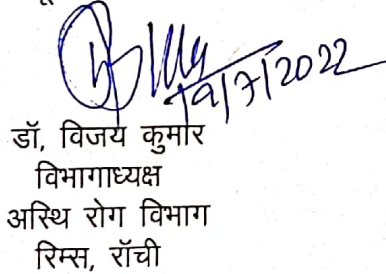 19/7/2022
डॉ, विजय कुमार
विभागाध्यक्ष
अस्थि रोग विभाग
रिम्स, रॉची